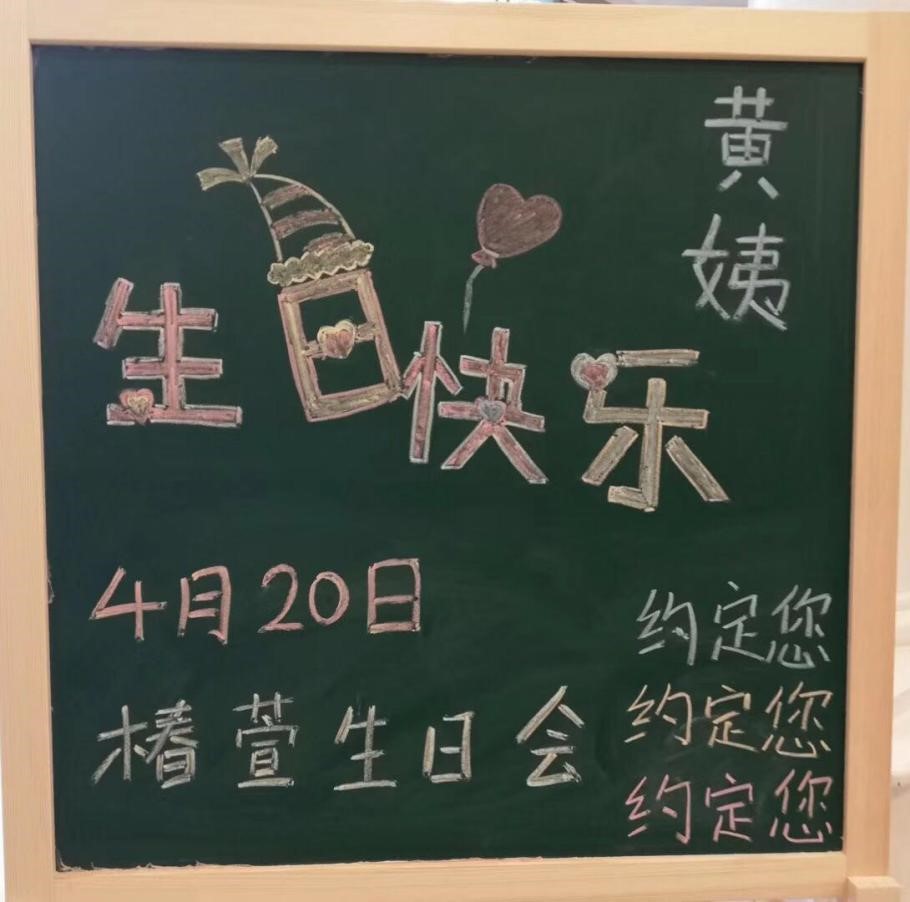 黄姨
生日快乐
4月20日
椿萱生日会
约定您
约定您
约定您